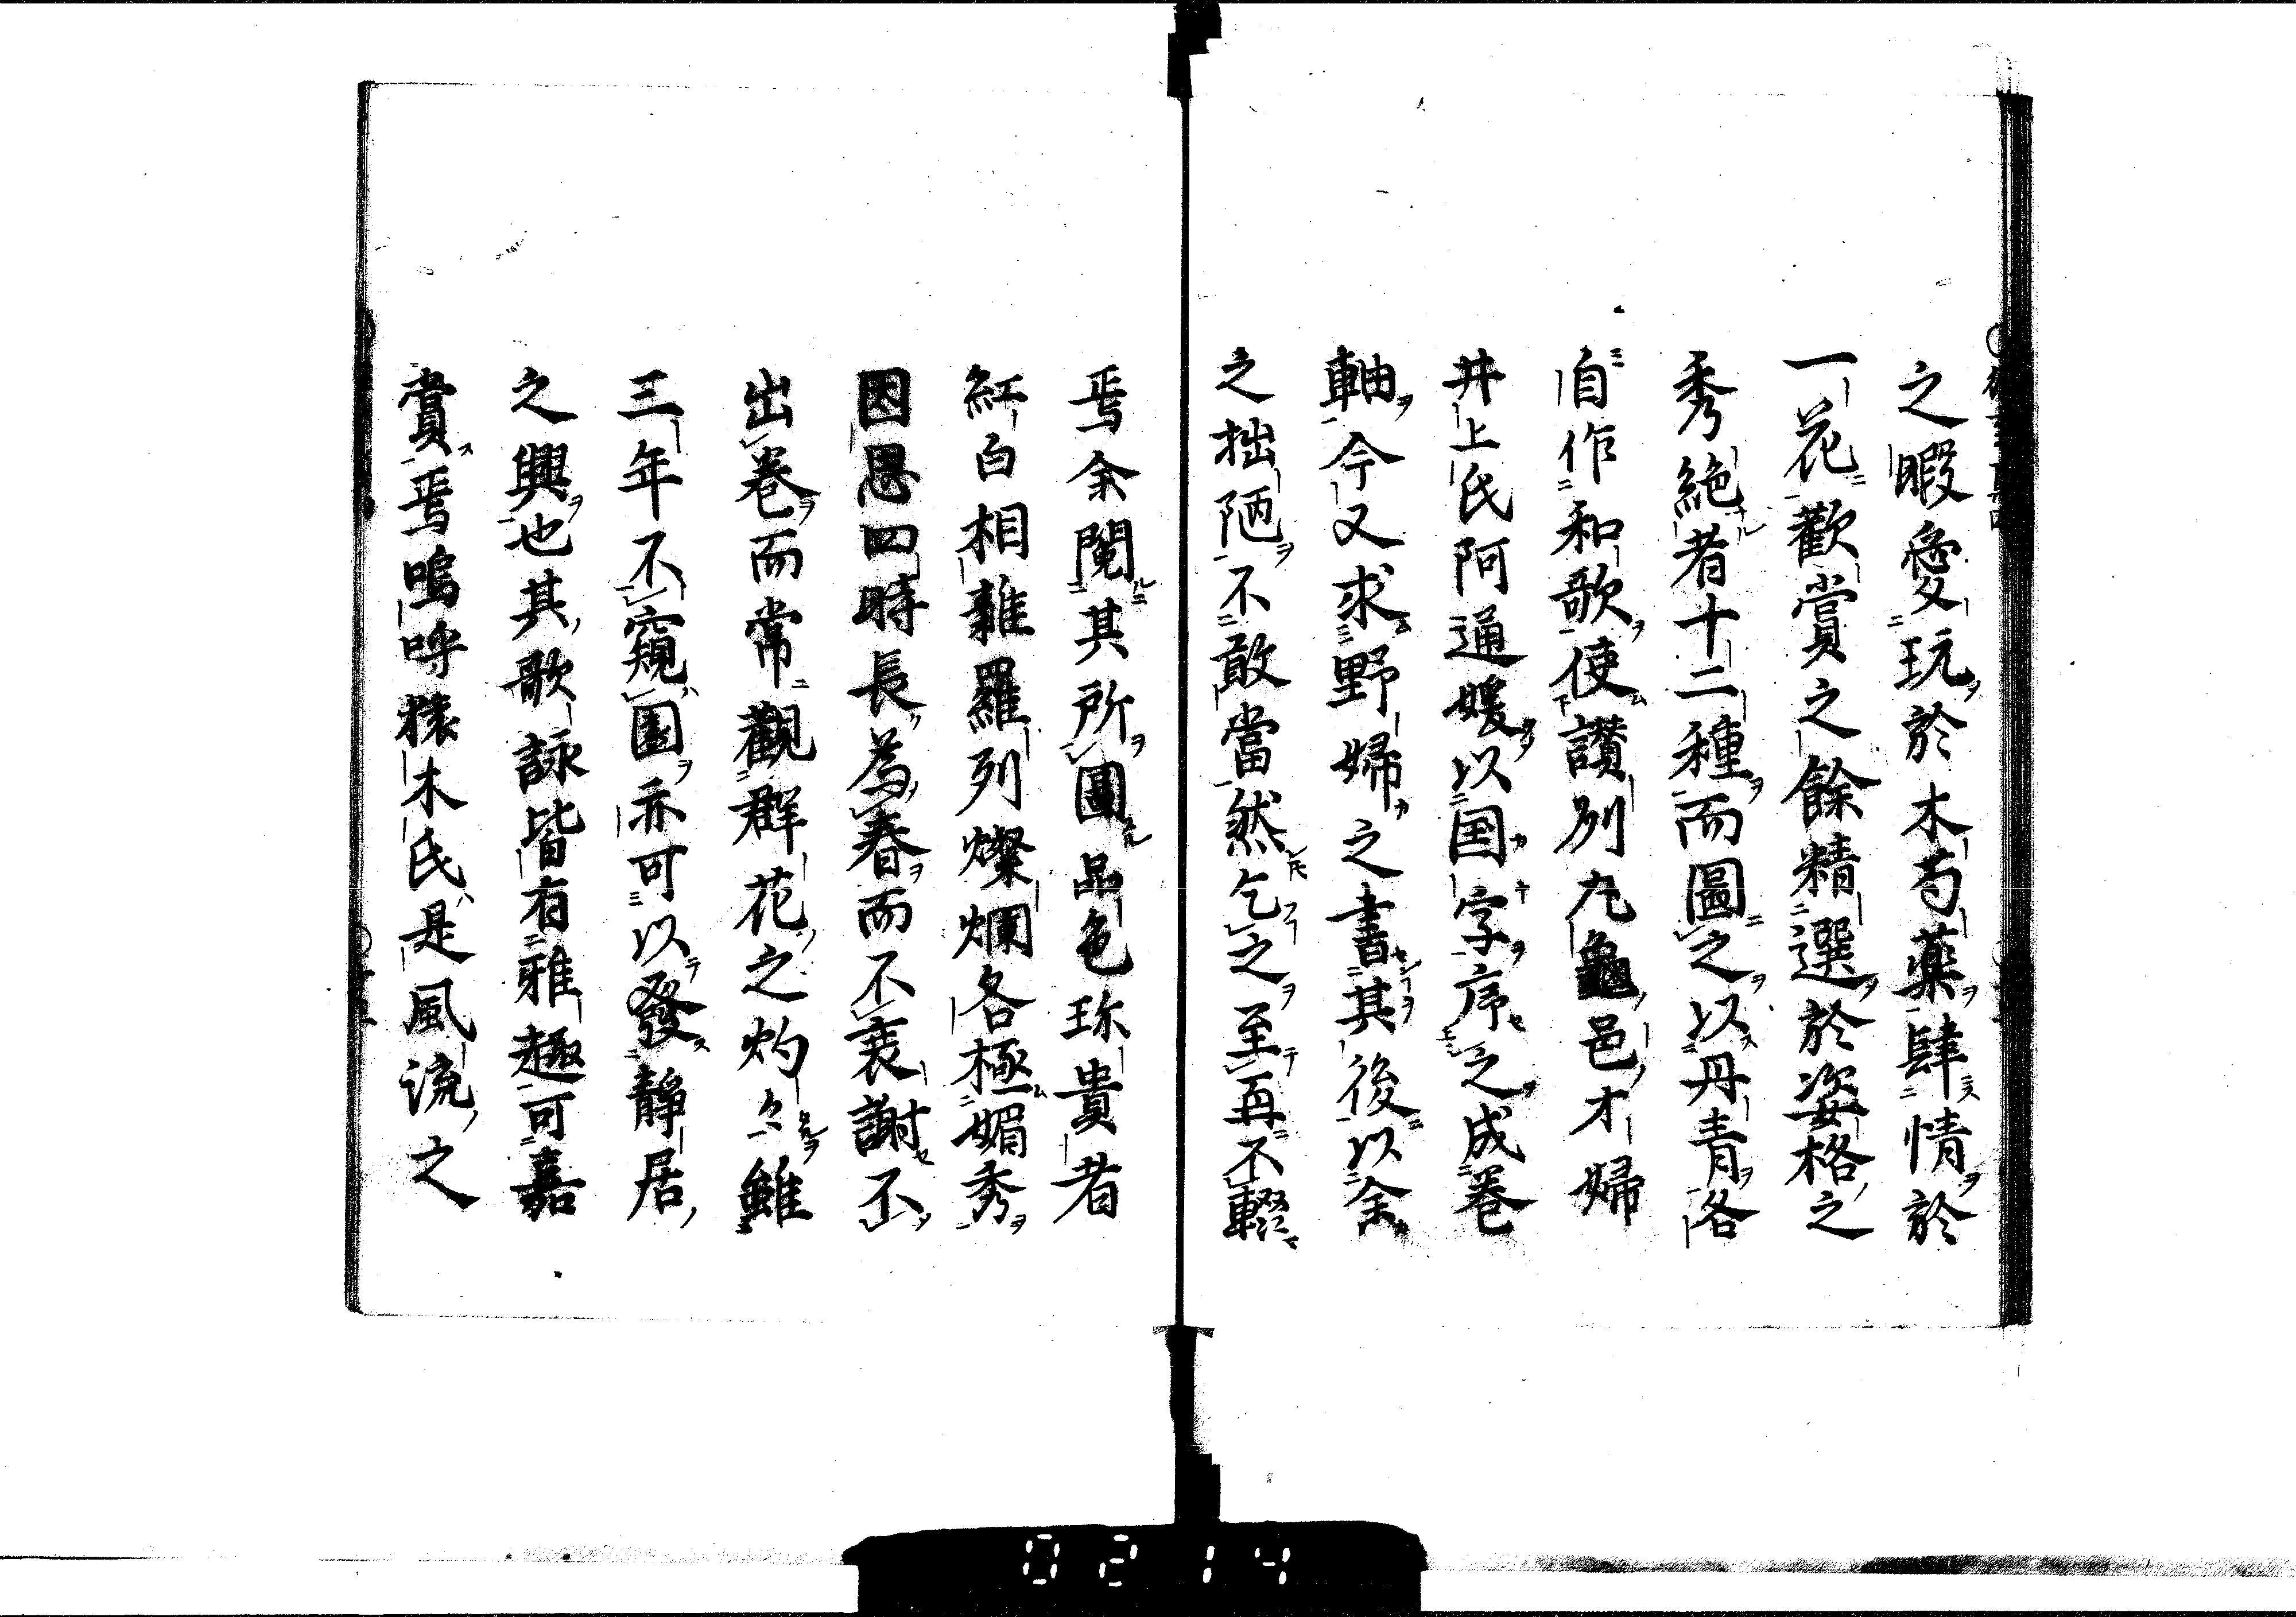 之暇愛玩於木芍薬肆情於
一花歡賞之餘精選於姿格之
秀絶者十二種而圖之以丹青各
自作和歌使讃列九龜邑才婦
井上氏阿通媛以国字序之成巻
軸今又求野婦之書其後以余
之拙陋不敢當然乞之至再不輟
焉余閲其所圖品色珎貴者
紅白相雜羅列燦爛各極媚秀
因思四時長為春而不衰謝不
出巻而常觀群花之灼〻雖
三年不窺園亦可以發靜居
之興也其歌詠皆有雅趣可嘉
賞焉嗚呼榛木氏是風流之
0214